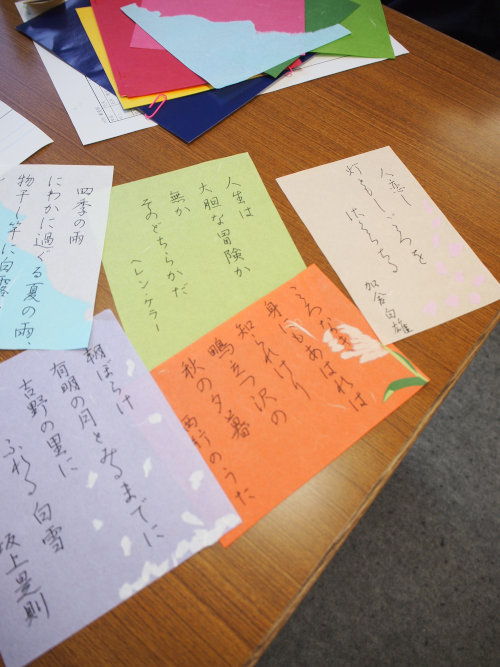 四季の雨
にわかに過ぐる夏の雨、
物干し竿に白露
人生は
大胆な冒険か
無か
そのどちらかだ
ヘレンケラー
人恋し
灯ともしころを
さくらちる
加舎白雄
こころなき
身にもあはれは
知られけり
鴫立つ沢の
秋の夕暮
西行のうた
朝ぼらけ
有明の月とみるまでに
吉野の里に
ふれる白雪
坂上是則